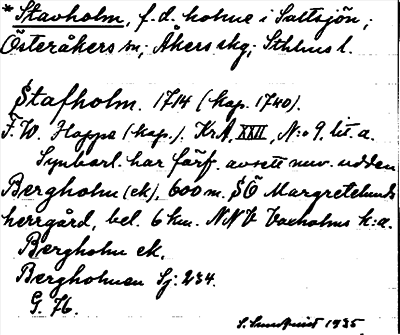 * Stavholm, f.d. holme i Saltsjön;
Österåkers sn; Åkers skg; Sthlms l.
Stafholm. 1714 (kop. 1740).
F.W. Hoppe (kop.). KrA, XXII, N:o 9. lit. a.
Synbarl. har förf. avsett nuv. udden
Bergholm (ek), 600 m. SÖ Margretelunds
herrgård, bel. 6 km. NNV Vaxholms k:a.
Bergholm ek.
Bergholmen Sj: 234.
G. 76.
S. Sundqvist 1935